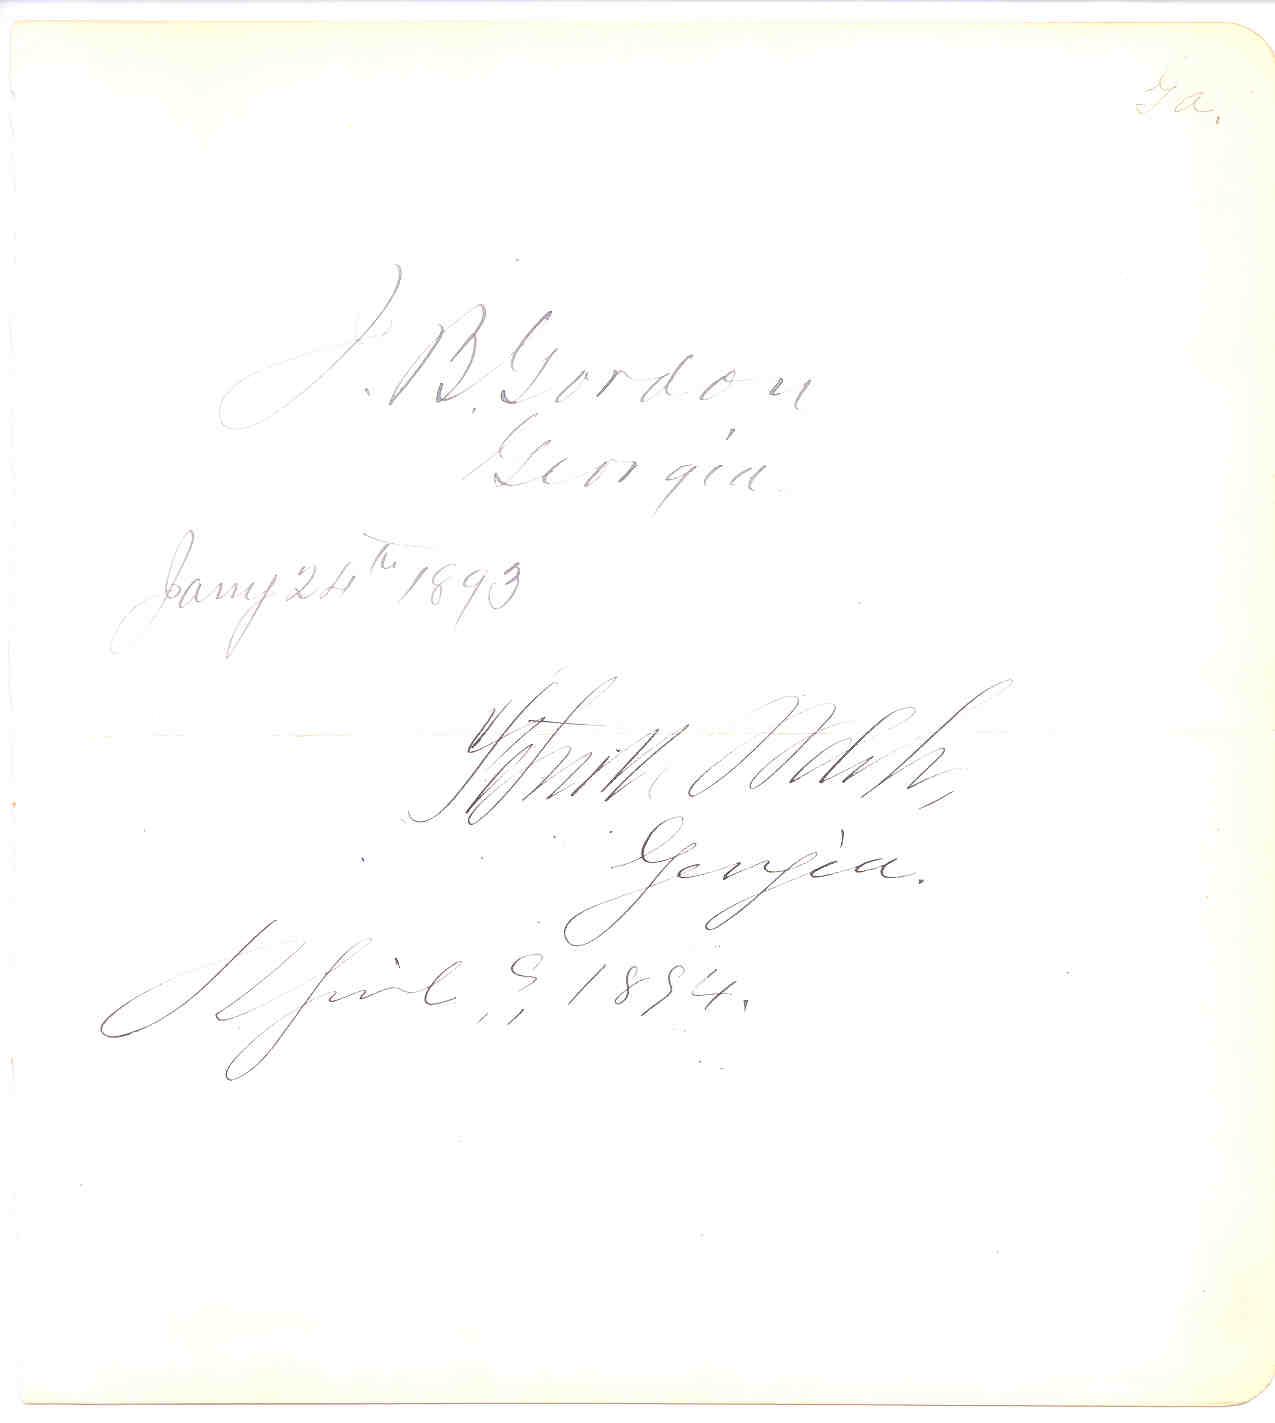 Ga.
J. B. Gordon
Georgia
Jany 24th 1893
Patrick Walsh,
Georgia.
April, 9, 1894.